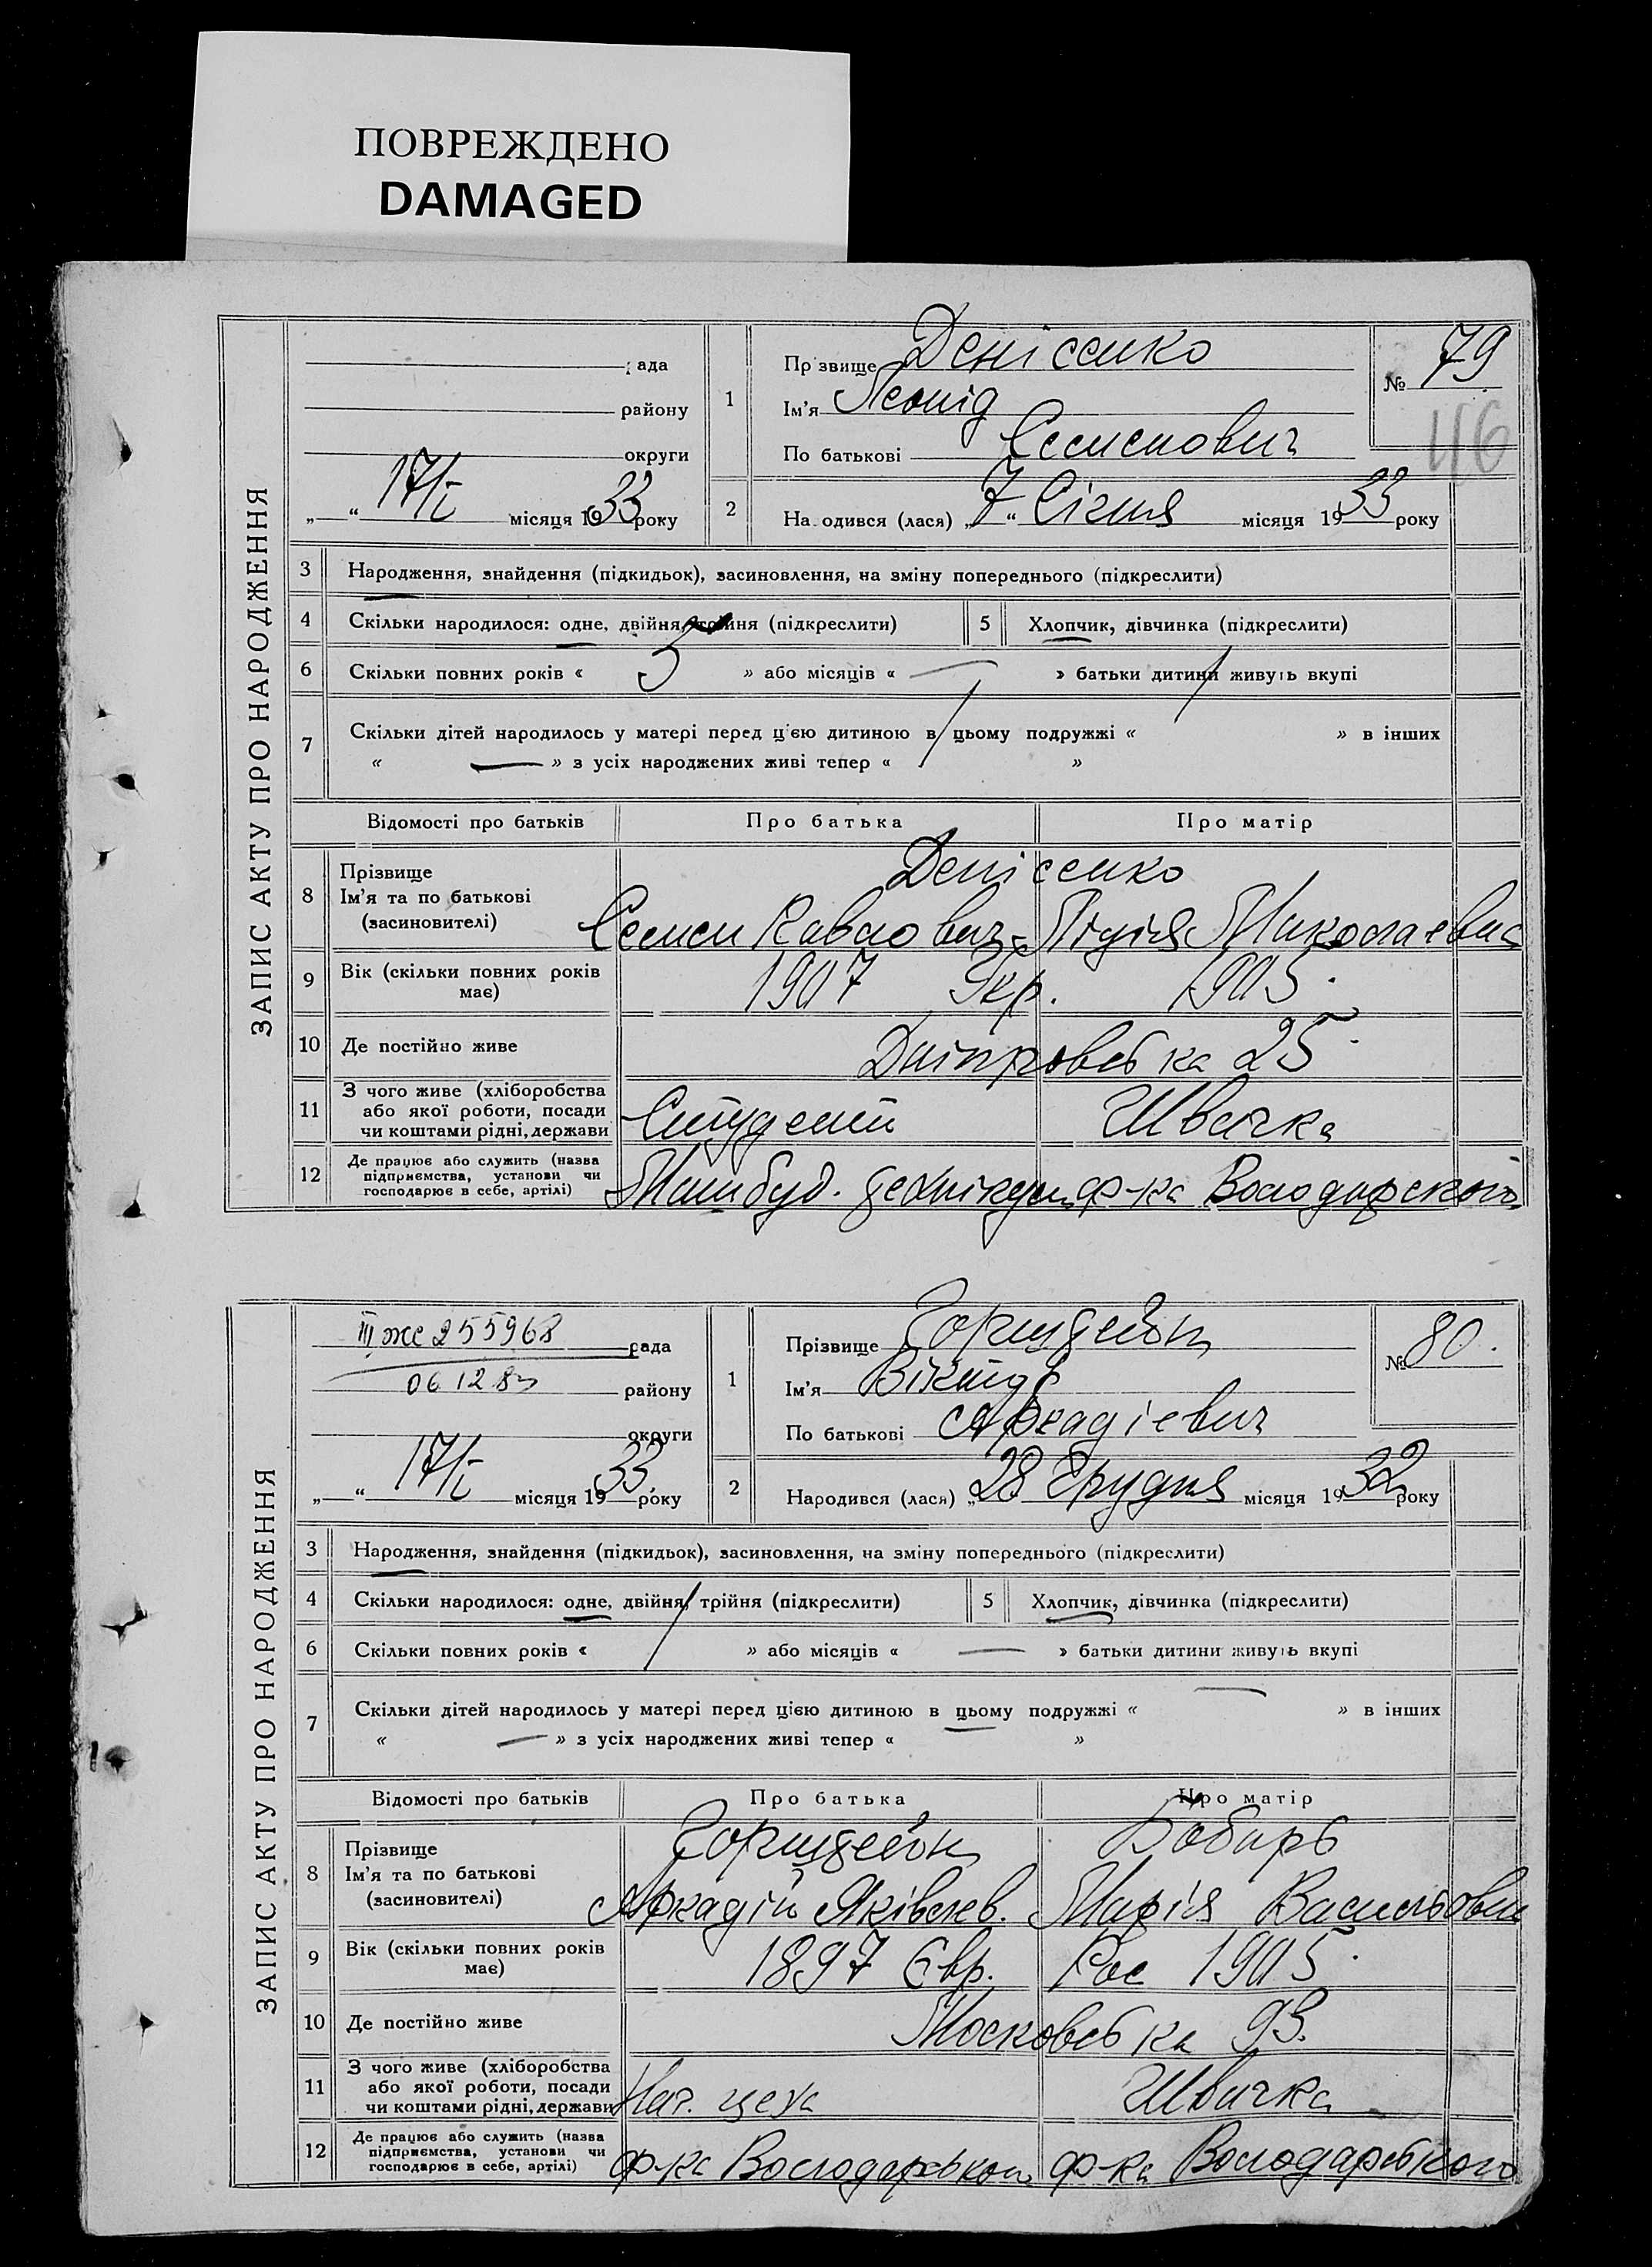 ПОВРЕЖДЕНО
DAMAGED
ЗАПИС АКТУ ПРО НАРОДЖЕННЯ
рада
району
округи
„ “ 17/I місяця 1933 року
1
Прізвище Денісенко
Ім'я Леонід
По батькові Семенович
№ 79
46
2
Народився (лася) „7“ Січня місяця 1933 року
3 Народження, знайдення (підкидьок), засиновлення, на зміну попереднього (підкреслити)
4 Скільки народилося: одне, двійня, трійня (підкреслити) 5 Хлопчик, дівчинка (підкреслити)
6 Скільки повних років « 5 » або місяців « — » батьки дитини живуть вкупі
7 Скільки дітей народилось у матері перед цією дитиною в цьому подружжі « » в інших
« — » з усіх народжених живі тепер « »
Відомості про батьків Про батька Про матір
8 Прізвище
Ім'я та по батькові
(засновителі)
Денісенко
Семен Лідія Миколаевна
9 Вік (скільки повних років має) 1907 Укр. 1905
10 Де постійно живе Дніпровська 25
11 З чого живе (хліборобства
або якої роботи, посади
чи коштами рідні, держави
Студент Швачка
12 Де працює або служить (назва
підприємства, установи чи
господарює в себе, артілі)
Машбуд. технікум ф-ка Володарского
ЗАПИС АКТУ ПРО НАРОДЖЕННЯ
III же 255968 рада
06 12 83 району
округи
„ “ 17/I місяця 1933 року
1
Прізвище Горштейн
Ім'я Віктор
По батькові Аркадієвич
№ 80.
2
Народився (лася) „28 Грудня місяця 1932 року
3 Народження, знайдення (підкидьок), засиновлення, на зміну попереднього (підкреслити)
4 Скільки народилося: одне, двійня, трійня (підкреслити) 5 Хлопчик, дівчинка (підкреслити)
6 Скільки повних років « / » або місяців « — » батьки дитини живуть вкупі
7 Скільки дітей народилось у матері перед цією дитиною в цьому подружжі « — » в інших
« — » з усіх народжених живі тепер « »
Відомості про батьків Про батька Про матір
8 Прізвище
Ім'я та по батькові
(засиновителі)
Горштейн Бобирь
Аркадій Яківлев. Марія Васильовн
9 Вік (скільки повних років має) 1897 Євр. Рос 1905
10 Де постійно живе Московська 93.
11 З чого живе (хліборобства
або якої роботи, посади
чи коштами рідні, держави
Нач. цеха Швачка
12 Де працює або служить (назва
підприємства, установи чи
господарює в себе, артілі)
ф-ка Володарського ф-ка Володарського